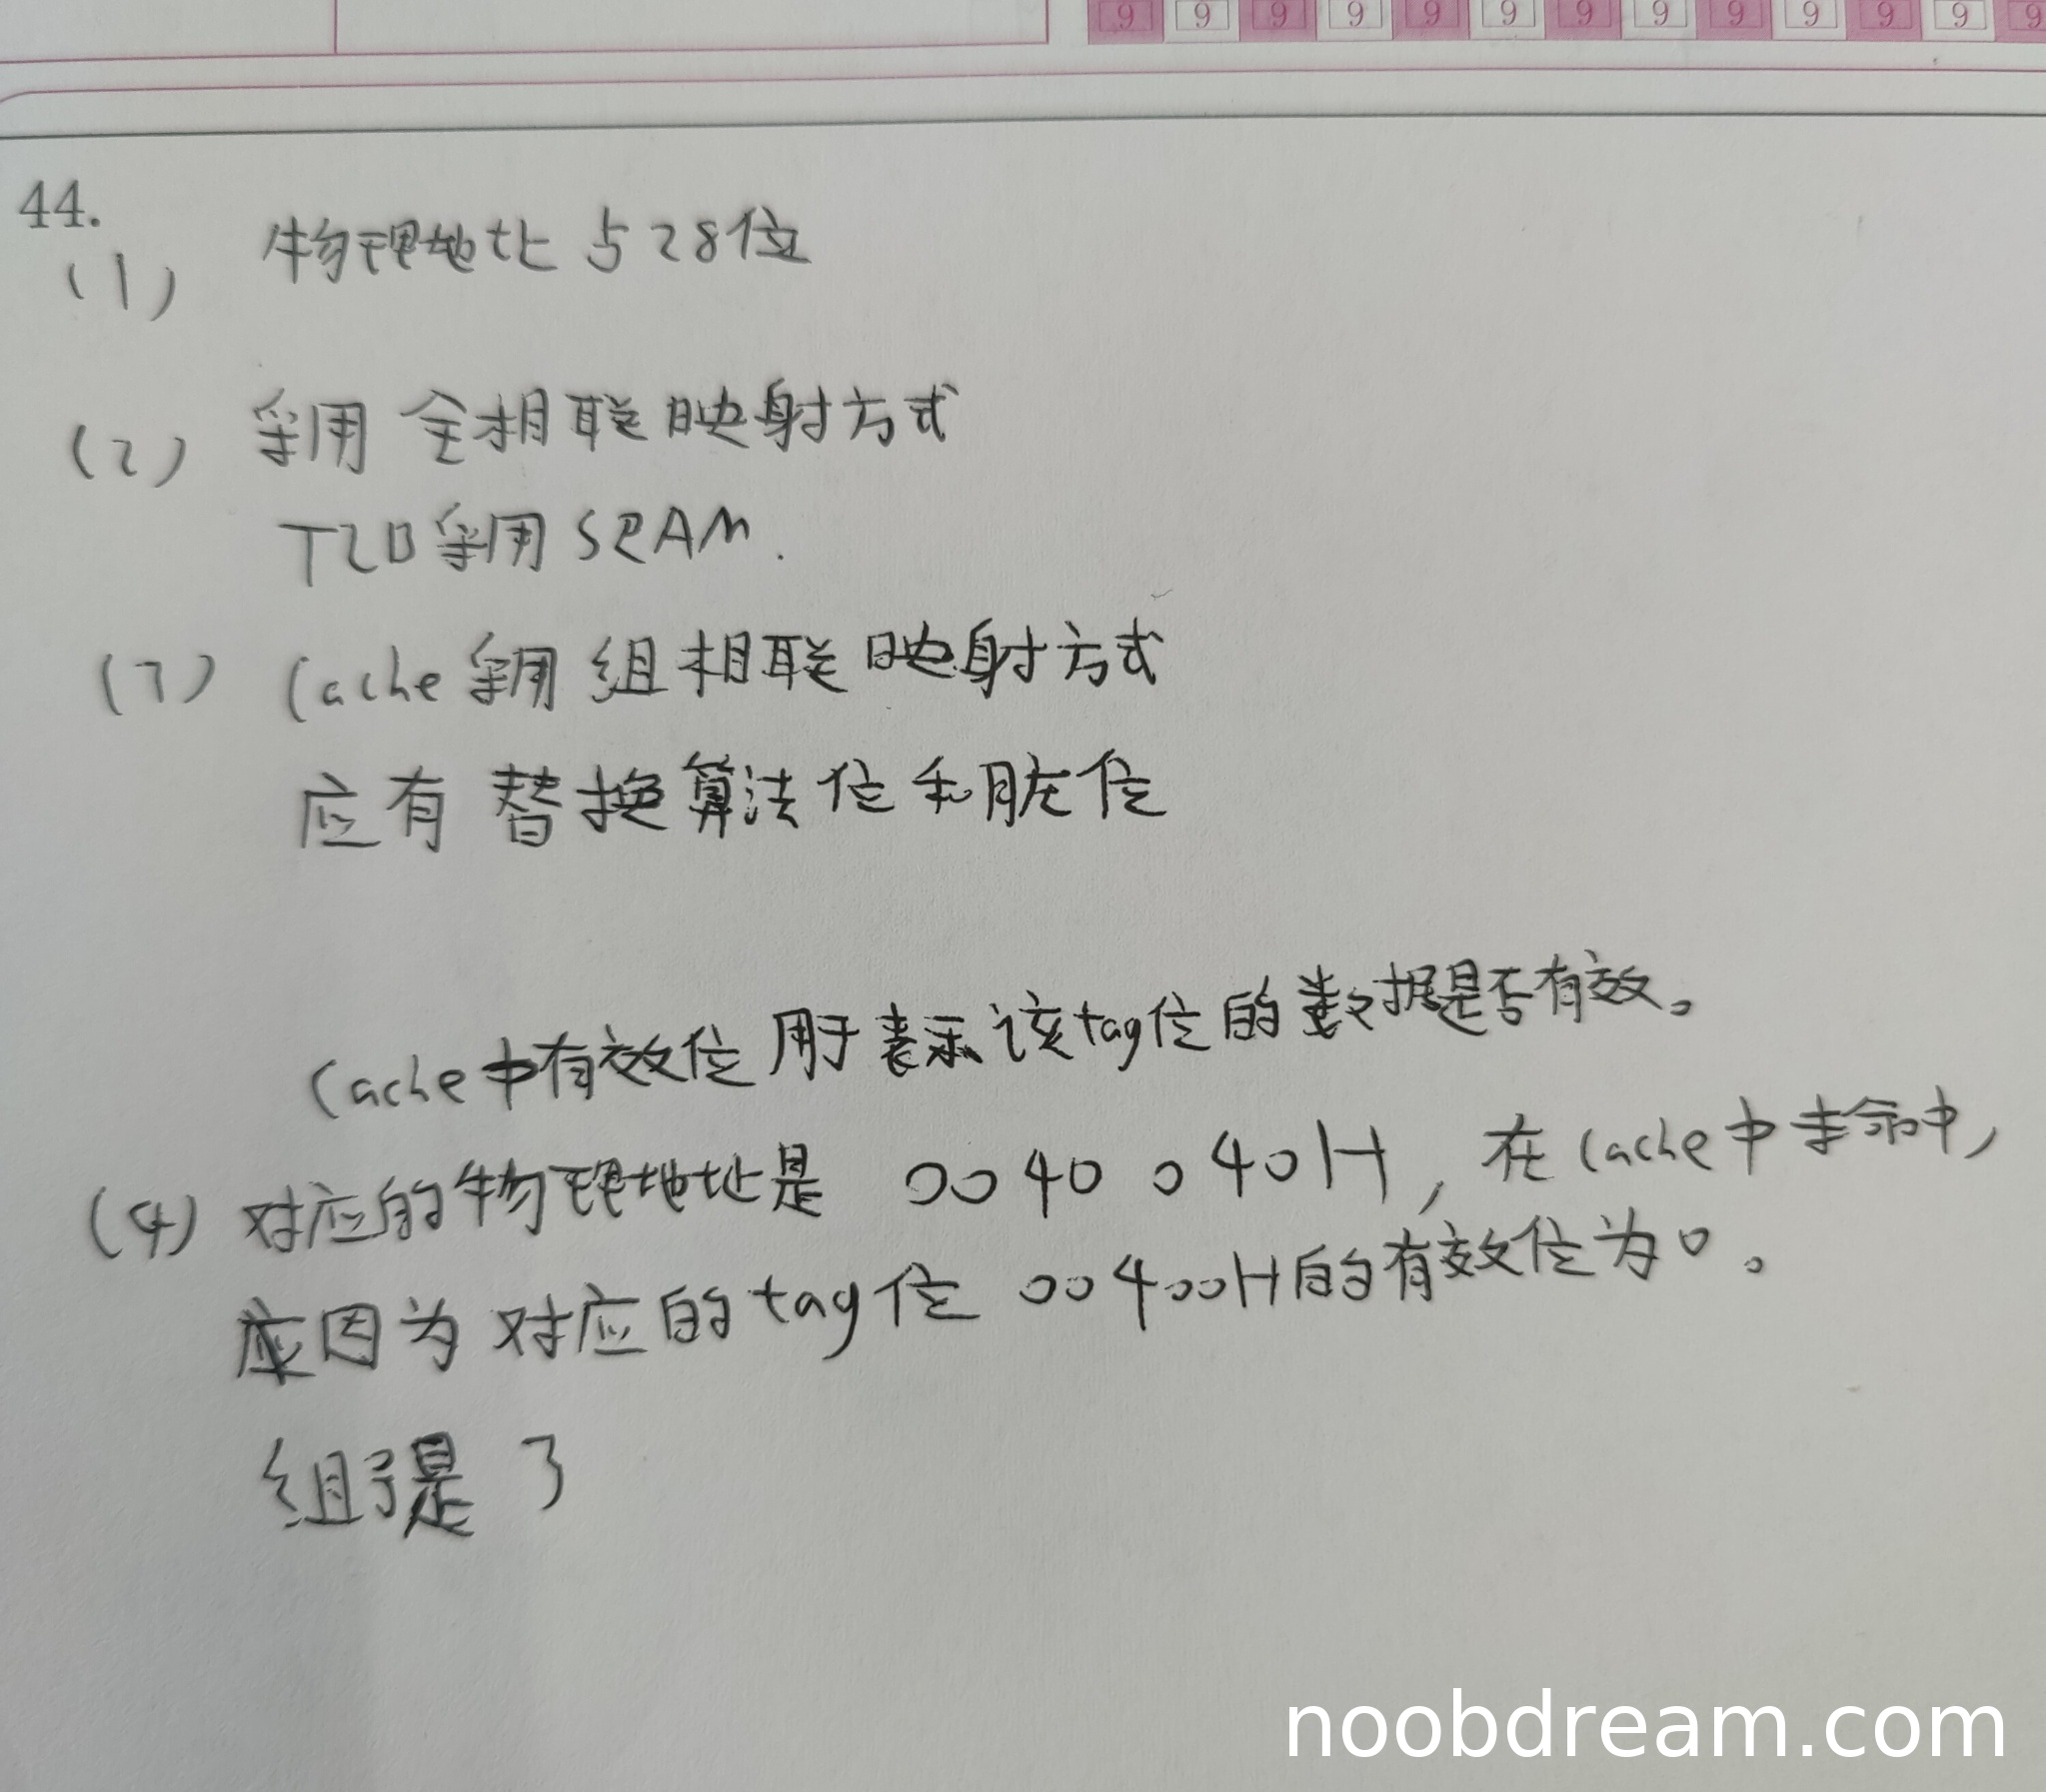 9 9 9 9 9 9 9 9 9 9 9 9 9
44.
(1) 物理地址占28位
(2) 采用全相联映射方式
TLB采用SRAM.
(3) Cache采用组相联映射方式
应有替换算法位和脏位
Cache中有效位用于表示该tag位的数据是否有效。
(4) 对应的物理地址是 0040040H, 在Cache中未命中,
因为对应的tag位00400H的有效位为0。
组号是 3
noobdream.com